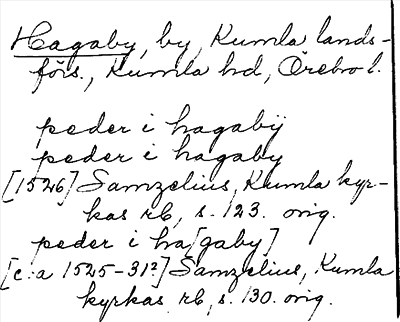 Hagaby, by, Kumla lands-
förs., Kumla hd, Örebro l.
peder i hagabÿ
peder i hagaby
[1526] Samzelius, Kumla kyr-
kas rb, s. 123. orig.
peder i ha[gaby]
[c:a 1525-31?] Samzelius, Kumla
kyrkas rb, s. 130. orig.